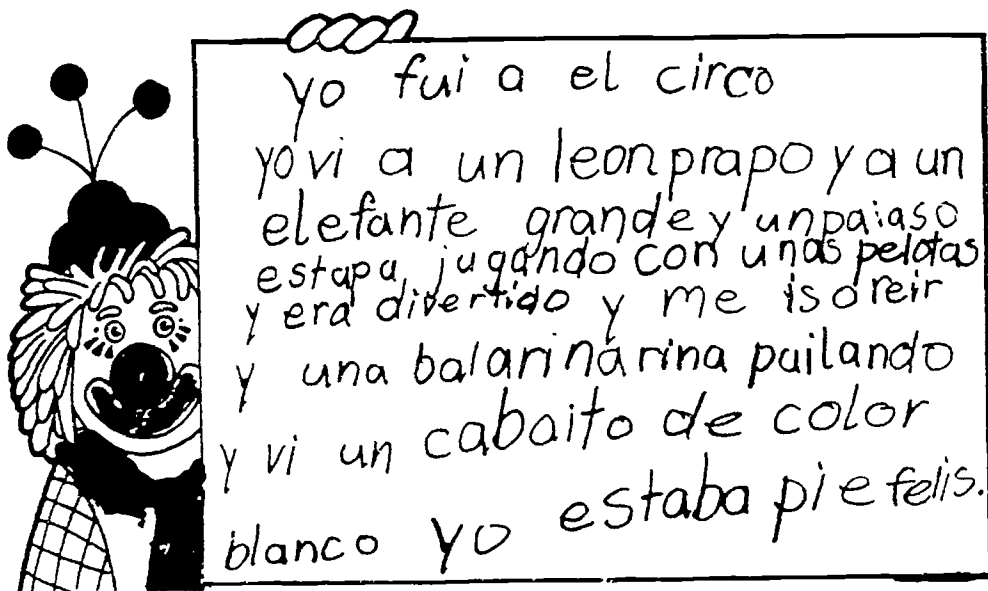 yo fui a el circo
yo vi a un leon prapo y a un
elefante grande y un paiaso
estapa jugando con unas pelotas
y era divertido y me iso reir
y una balarinarina pailando
y vi un cabaito de color
blanco yo estaba pie felis.